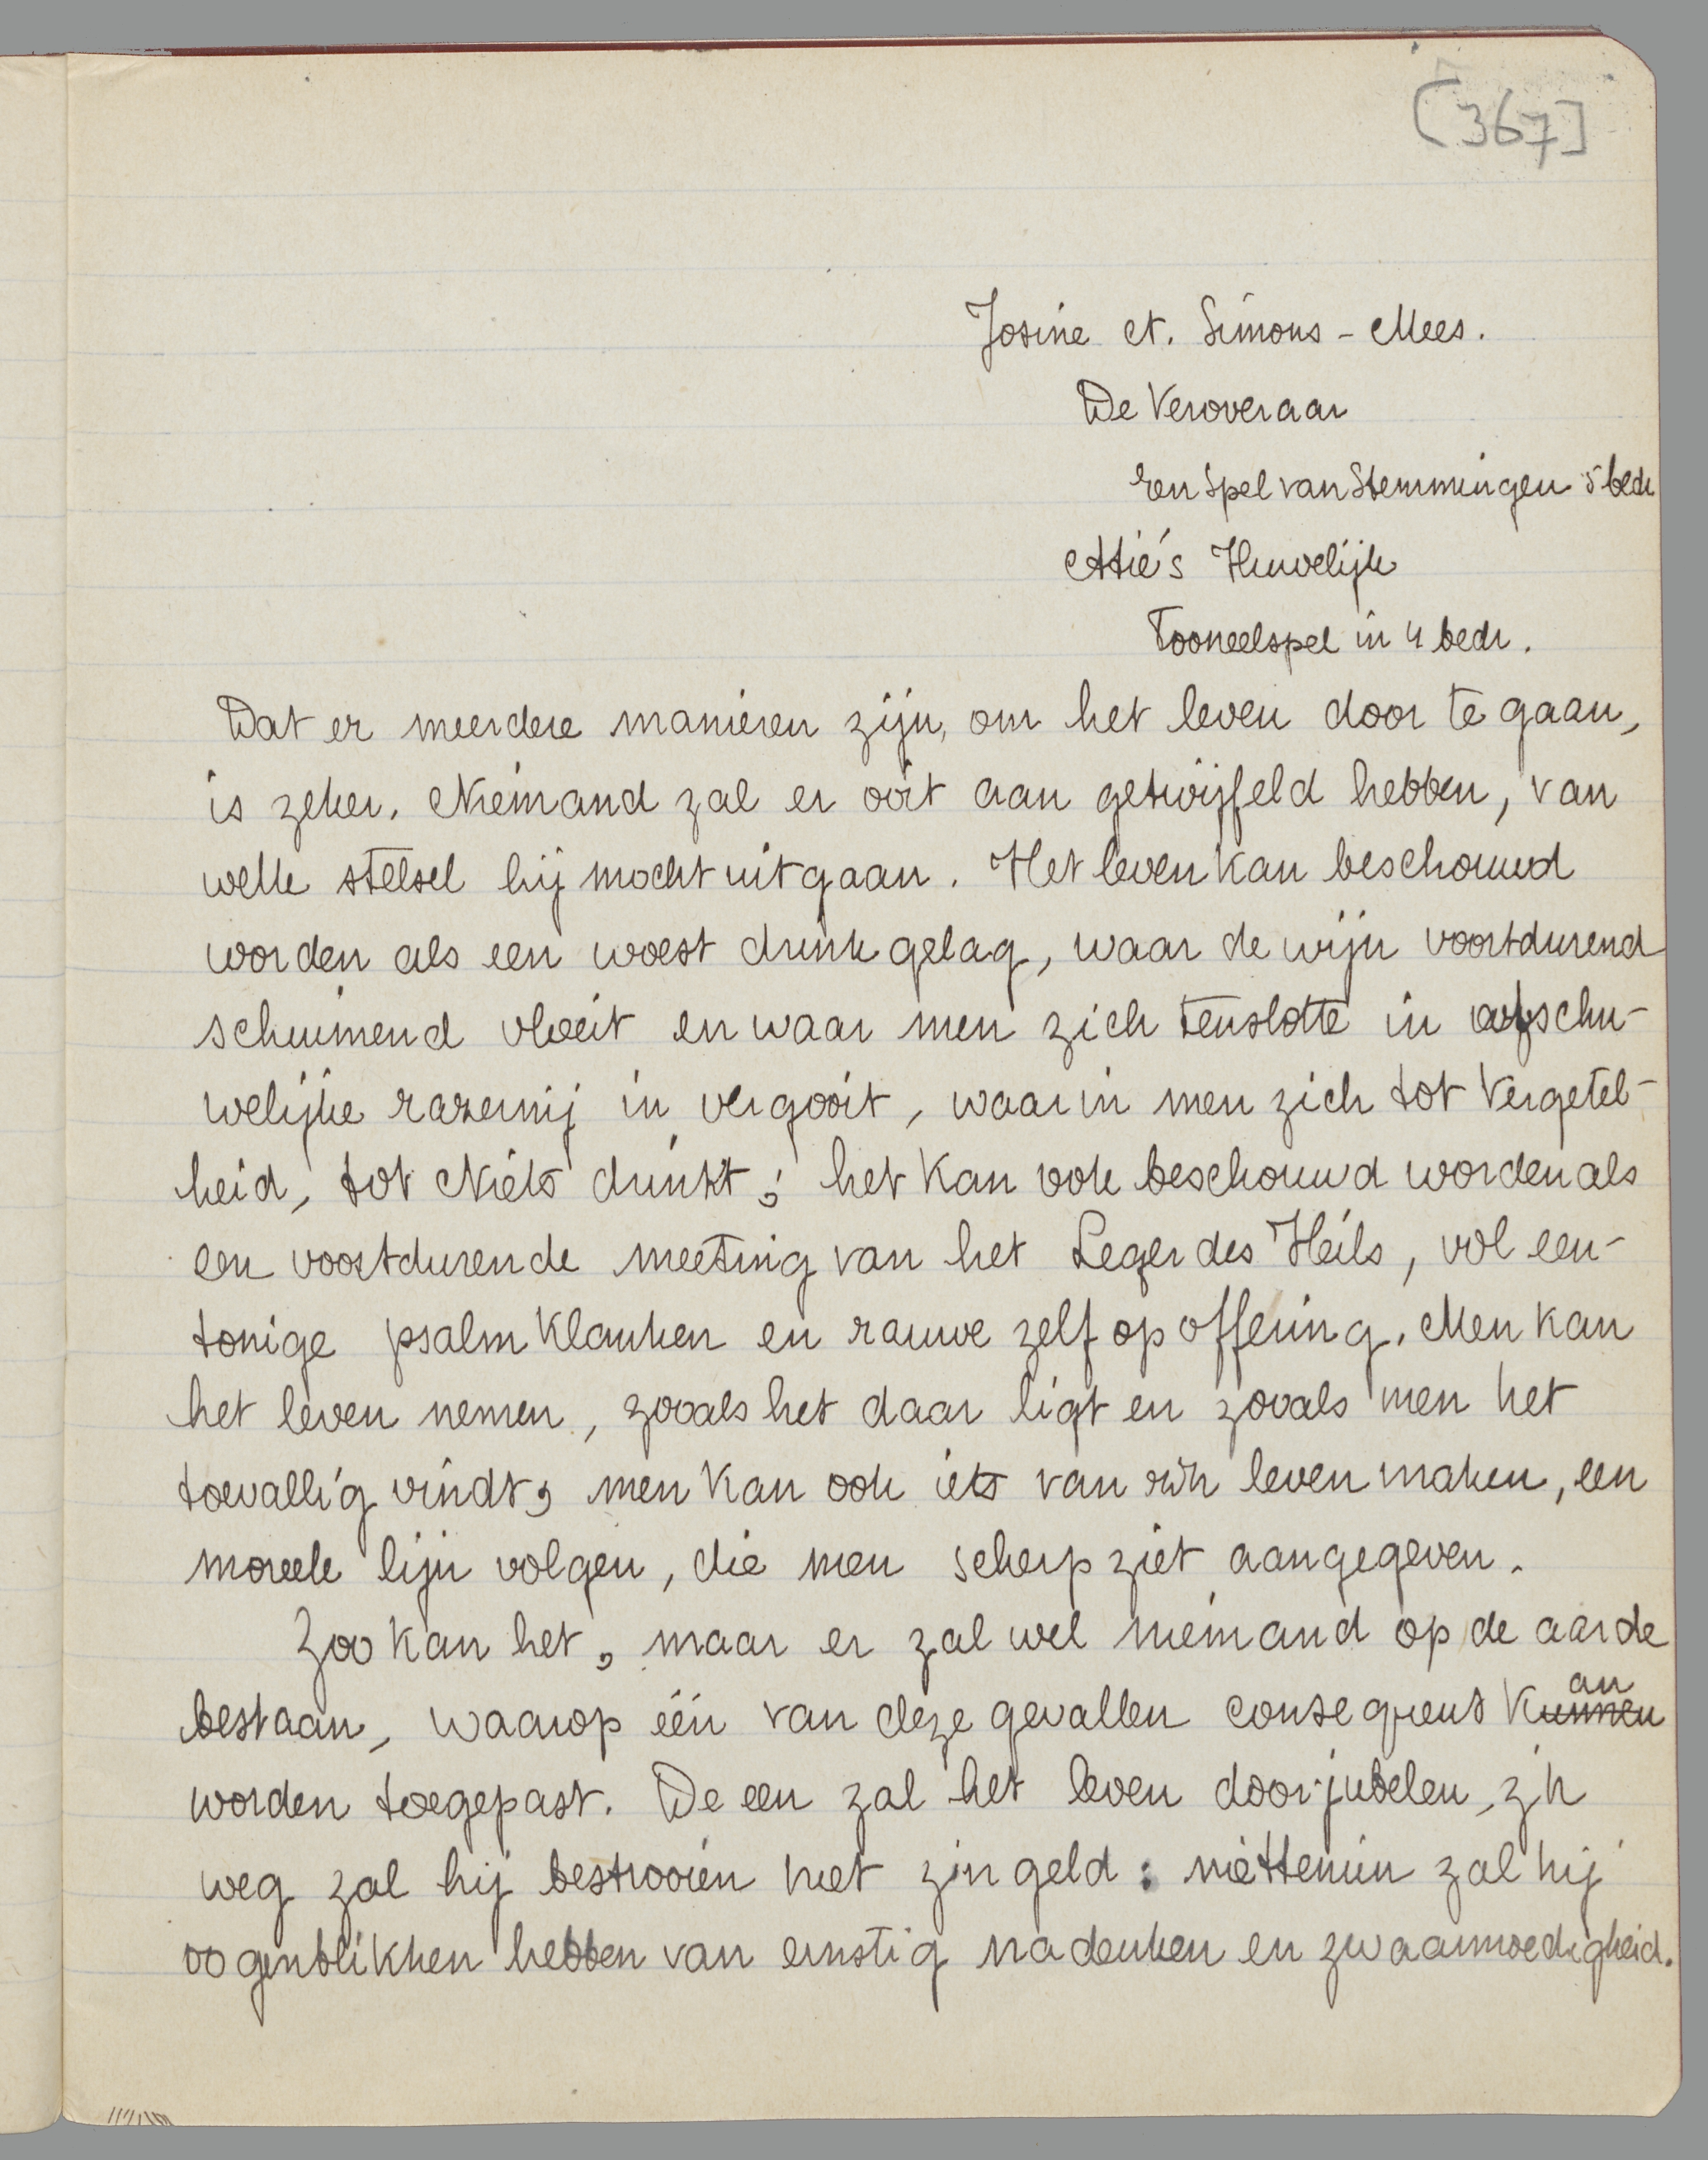 [367]
Josine A. Simons - Mees.
De Veroveraar
Een Spel van Stemmingen 5 bedr
Atie's Huwelijk
Tooneelspel in 4 bedr.
Dat er meerdere manieren zijn, om het leven door te gaan,
is zeker. Niemand zal er ooit aan getwijfeld hebben, van
welk stelsel hij mocht uitgaan. Het leven kan beschouwd
worden als een woest drinkgelag, waar de wijn voortdurend
schuimend vloeit en waar men zich tenslotte in afschu-
welijke razernij in vergooit, waarin men zich tot Vergetel-
heid, tot Niets drinkt; het kan ook beschouwd worden als
een voortdurende meeting van het Leger des Heils, vol een-
tonige psalmklanken en rauwe zelfopoffering. Men kan
het leven nemen, zooals het daar ligt en zooals men het
toevallig vindt; men kan ook iets van zìn leven maken, een
moreele lijn volgen, die men scherp ziet aangegeven.
Zoo kan het, maar er zal wel niemand op de aarde
bestaan, waarop één van deze gevallen consequent kunnen an
worden toegepast. De een zal het leven doorjubelen, z'n
weg zal hij bestrooien met zijn geld: niettemin zal hij
oogenblikken hebben van ernstig nadenken en zwaarmoedigheid.